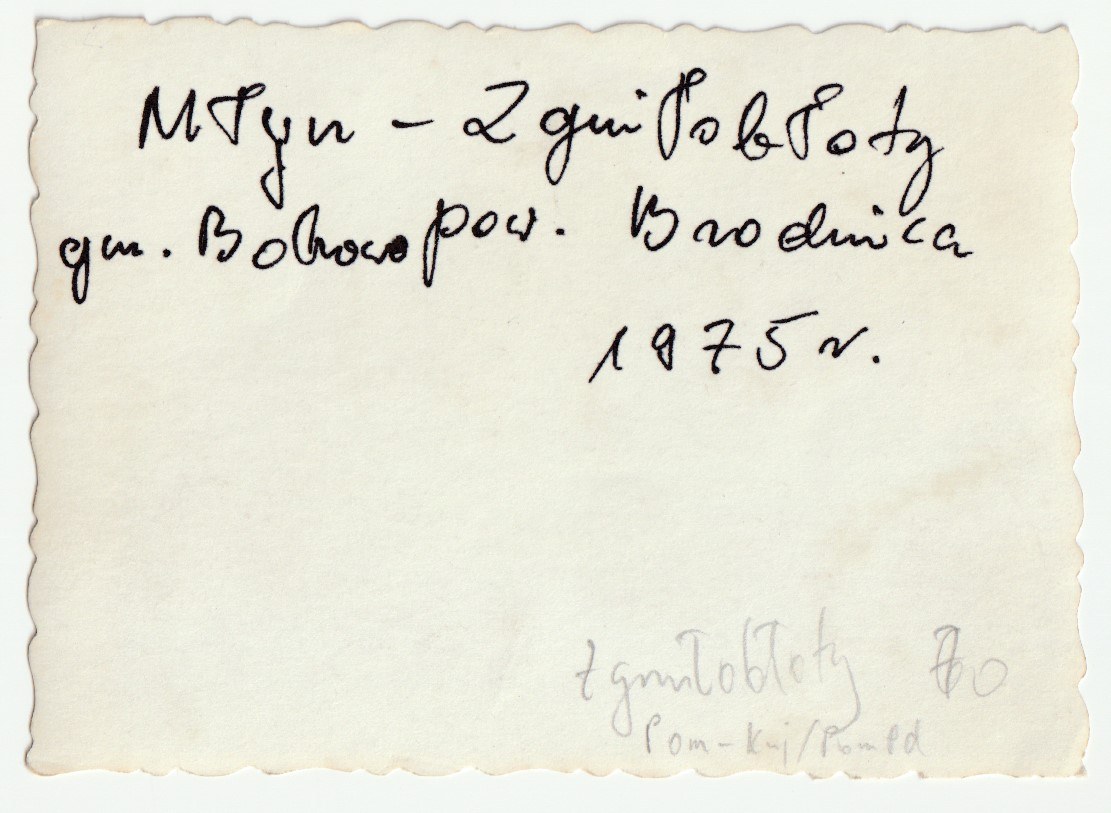 Młyn - Zgniłobłoty
gm. Bobrowo pow. Brodnica
1975 r.
Zgniłobłoty
Pom-Kuj/PomPd